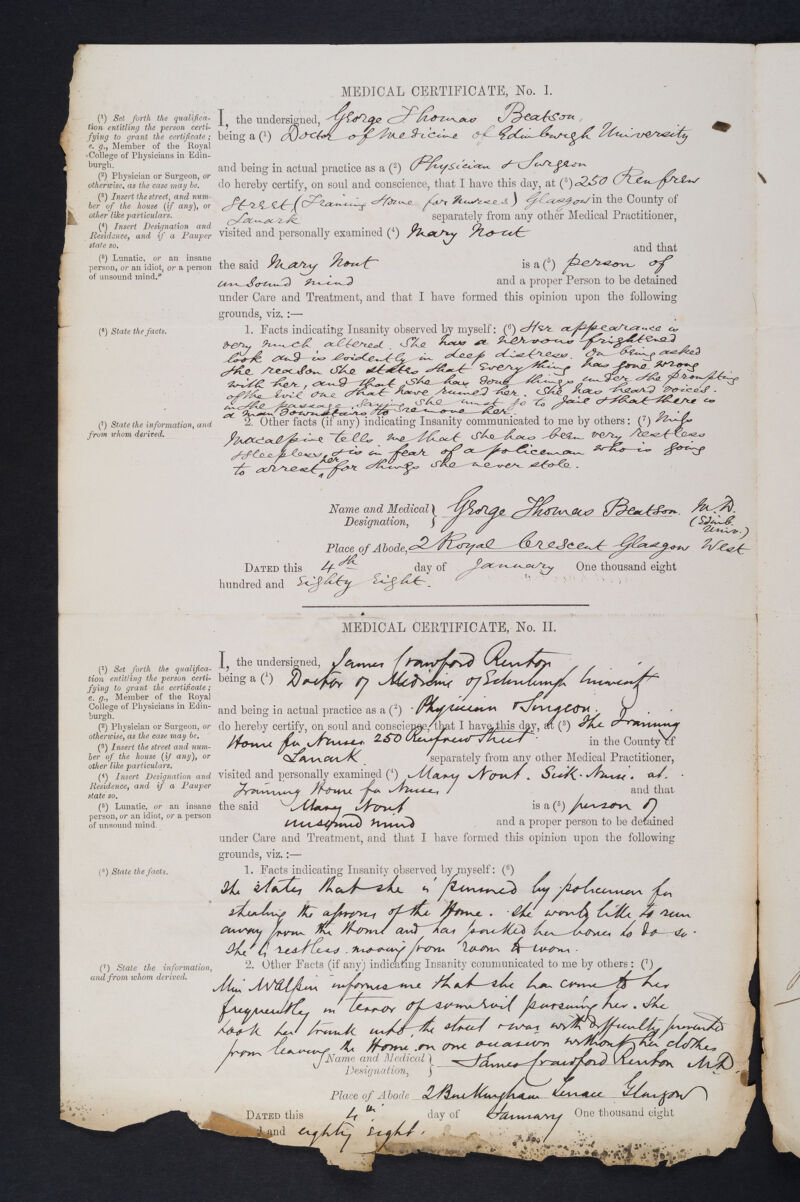 MEDICAL CERTIFICATE, No. I.
(¹) Set forth the qualifica-
tion entitling the person certi-
fying to grant the certificate;
e. g., Member of the Royal
College of Physicians in Edin-
burgh.
(²) Physician or Surgeon, or
otherwise, as the case may be.
(³) Insert the street, and num-
ber of the house (if any), or
other like particulars.
(⁴) Insert Designation and
Residence, and if a Pauper
state so.
(⁵) Lunatic, or an insane
person, or an idiot, or a person
of unsound mind.
(⁶) State the facts.
(⁷) State the information, and
from whom derived.
I, the undersigned, George Thomas Beatson,
being a (¹) Doctor of Medicine of Edinburgh University
and being in actual practice as a (²) Physician & Surgeon
do hereby certify, on soul and conscience, that I have this day, at (³) 250 Renfrew
Street (Training Home for Nurses) Glasgow in the County of
Lanark separately from any other Medical Practitioner,
visited and personally examined (⁴) Mary Nout
and that
the said Mary Nout is a (⁵) person of
unsound mind and a proper Person to be detained
under Care and Treatment, and that I have formed this opinion upon the following
grounds, viz. :—
1. Facts indicating Insanity observed by myself: (⁶) Her appearance is
very much altered. She has a nervous frightened
look and is evidently in deep distress. On being asked
the reason she states that everything has gone wrong
with her, and that she has done things under the prompting
of the Evil one that have ruined her. She has heard voices
in the passage saying she must go to Jail & that there is
a man downstairs to remove her.
2. Other facts (if any) indicating Insanity communicated to me by others: (⁷) Miss
Macalpine tells me that she has been very restless
& sleepless, & is in fear of a policeman who is going
to arrest her for things she never stole.
Name and Medical Designation, George Thomas Beatson. M.D.
(Edinb. Univ.)
Place of Abode, 2 Royal Crescent Glasgow West
DATED this 4th day of January One thousand eight
hundred and Eighty Eight.
MEDICAL CERTIFICATE, No. II.
(¹) Set forth the qualifica-
tion entitling the person certi-
fying to grant the certificate;
e. g., Member of the Royal
College of Physicians in Edin-
burgh.
(²) Physician or Surgeon, or
otherwise, as the case may be.
(³) Insert the street and num-
ber of the house (if any), or
other like particulars.
(⁴) Insert Designation and
Residence, and if a Pauper
state so.
(⁵) Lunatic, or an insane
person, or an idiot, or a person
of unsound mind.
(⁶) State the facts.
(⁷) State the information,
and from whom derived.
I, the undersigned, James Crawford Renton
being a (¹) Doctor of Medicine of Edinburgh University
and being in actual practice as a (²) Physician & Surgeon.
do hereby certify, on soul and conscience, that I have this day, at (³) The Training
Home for Nurses 250 Renfrew Street in the County of
Lanark separately from any other Medical Practitioner,
visited and personally examined (⁴) Mary Nout. Sick-Nurse. at.
Training Home for Nurses and that
the said Mary Nout is a (⁵) person of
unsound mind and a proper person to be detained
under Care and Treatment, and that I have formed this opinion upon the following
grounds, viz. :—
1. Facts indicating Insanity observed by myself: (⁶)
She states that she is pursued by policeman for
stealing the aprons of the Home. She would like to run
away from the Home and has packed her boxes to do so.
She is restless moving from room to room.
2. Other Facts (if any) indicating Insanity communicated to me by others: (⁷)
Miss McAlpin informs me that she has come to her
frequently in terror of some evil pursuing her. She
took her trunk into the street & was with difficulty prevented
from leaving the Home on one occasion without her clothes
Name and Medical Designation, James Crawford Renton M.D.
Place of Abode 2 Buckingham Terrace Glasgow
DATED this 4th day of January One thousand eight
and eighty eight.